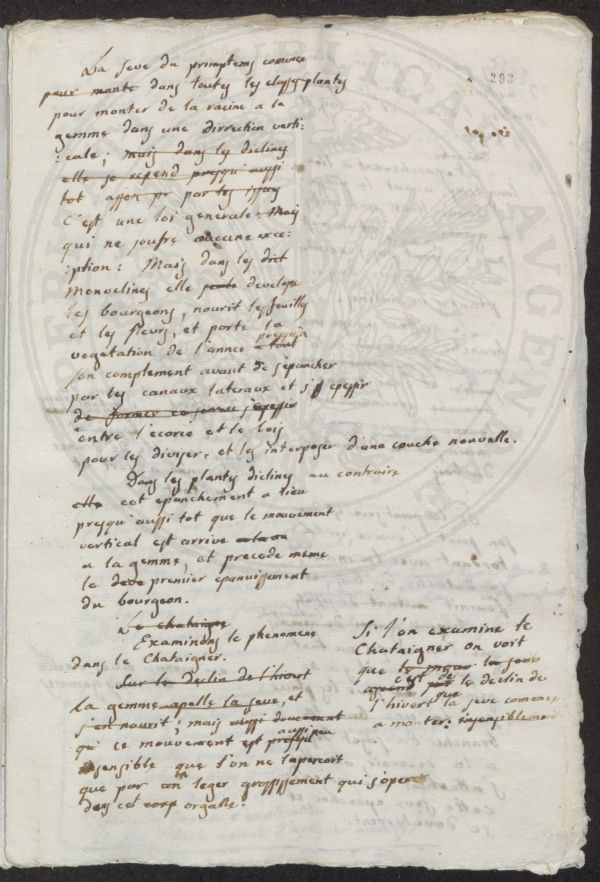 293
La seve du primptems comence
pour monte dans toutes les classes plantes
pour monter de la racine a la
gemme dans une dirrection verti:
:cale; mais dans les diclines
elle se repend presqu'aussi
tot
C'est une loi generale. Mais
qui ne soufre aucune exce:
:ption: Mais dans les dit
Monoclines elle porte develope
les bourgeons, nourit les feuilles
et les fleurs, et porte la
vegetation de l'annee a tout presqu'a
son complement avant de s'epancher
par les canaux lateraux et s'y epessir
de former s'epessir
entre l'ecorce et le bois
pour les diviser, et les interposer d'une couche nouvelle.
Dans les plantes diclines au contraire
elle cet epanchement a lieu
presqu'aussi tot que le mouvement
vertical est arrive
a la gemme, et precede meme
le deve premier epanuissement
du bourgeon.
Le chataigne
Examinons le phenomene
dans le Chataigner.
Sur le declin de l'hivert
la gemme apelle la seve, et
s'en nourit; mais aussi doucement
qui ce mouvement est presque aussi peu
sensible que l'on ne l'apercoit
que par un leger grossissement qui s'opere
dans cet corp
Si l'on examine le
Chataigner on voit
que
c'est de
que le declin de
l'hivert la seve comence
a monter insensiblement